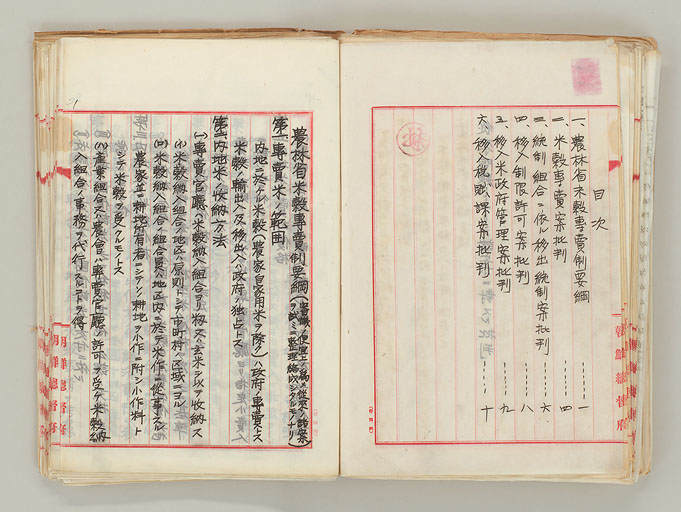 目次
一、農林省米穀專賣制要綱………一
二、米穀專賣案批判………四
三、統制組合ニ依ル移出統制案批判………六
四、移入制限許可案批判………八
五、移入米政府管理案批判………九
六、移入税賦課案批判………十
朝鮮總督府
農林省米穀專賣制要綱
第一、專賣米ノ範囲
内地ニ於ケル米穀(農家自家用米ヲ除ク)ハ政府ノ專賣トス
米穀ノ輸出入及移出入ハ政府ノ獨占トス
第二、内地米ノ收納方法
(一)專賣官廳ハ米穀納入組合ヨリ籾又ハ玄米ヲ以テ收納ス
(イ)米穀納入組合ノ地区ハ原則トシテ市町村ノ区域ニヨル
(ロ)米穀納入組合ノ組合員ハ地区内ニ於テ米作ニ從事スル
農家並ニ耕地所有者ニシテソノ耕地ヲ小作ニ附シ小作料ト
シテ米穀ヲ受クルモノトス
(ハ)產業組合又ハ農會ハ專賣官廳ノ許可ヲ受ケ米穀納
入組合ノ事務ヲ代行スルコトヲ得